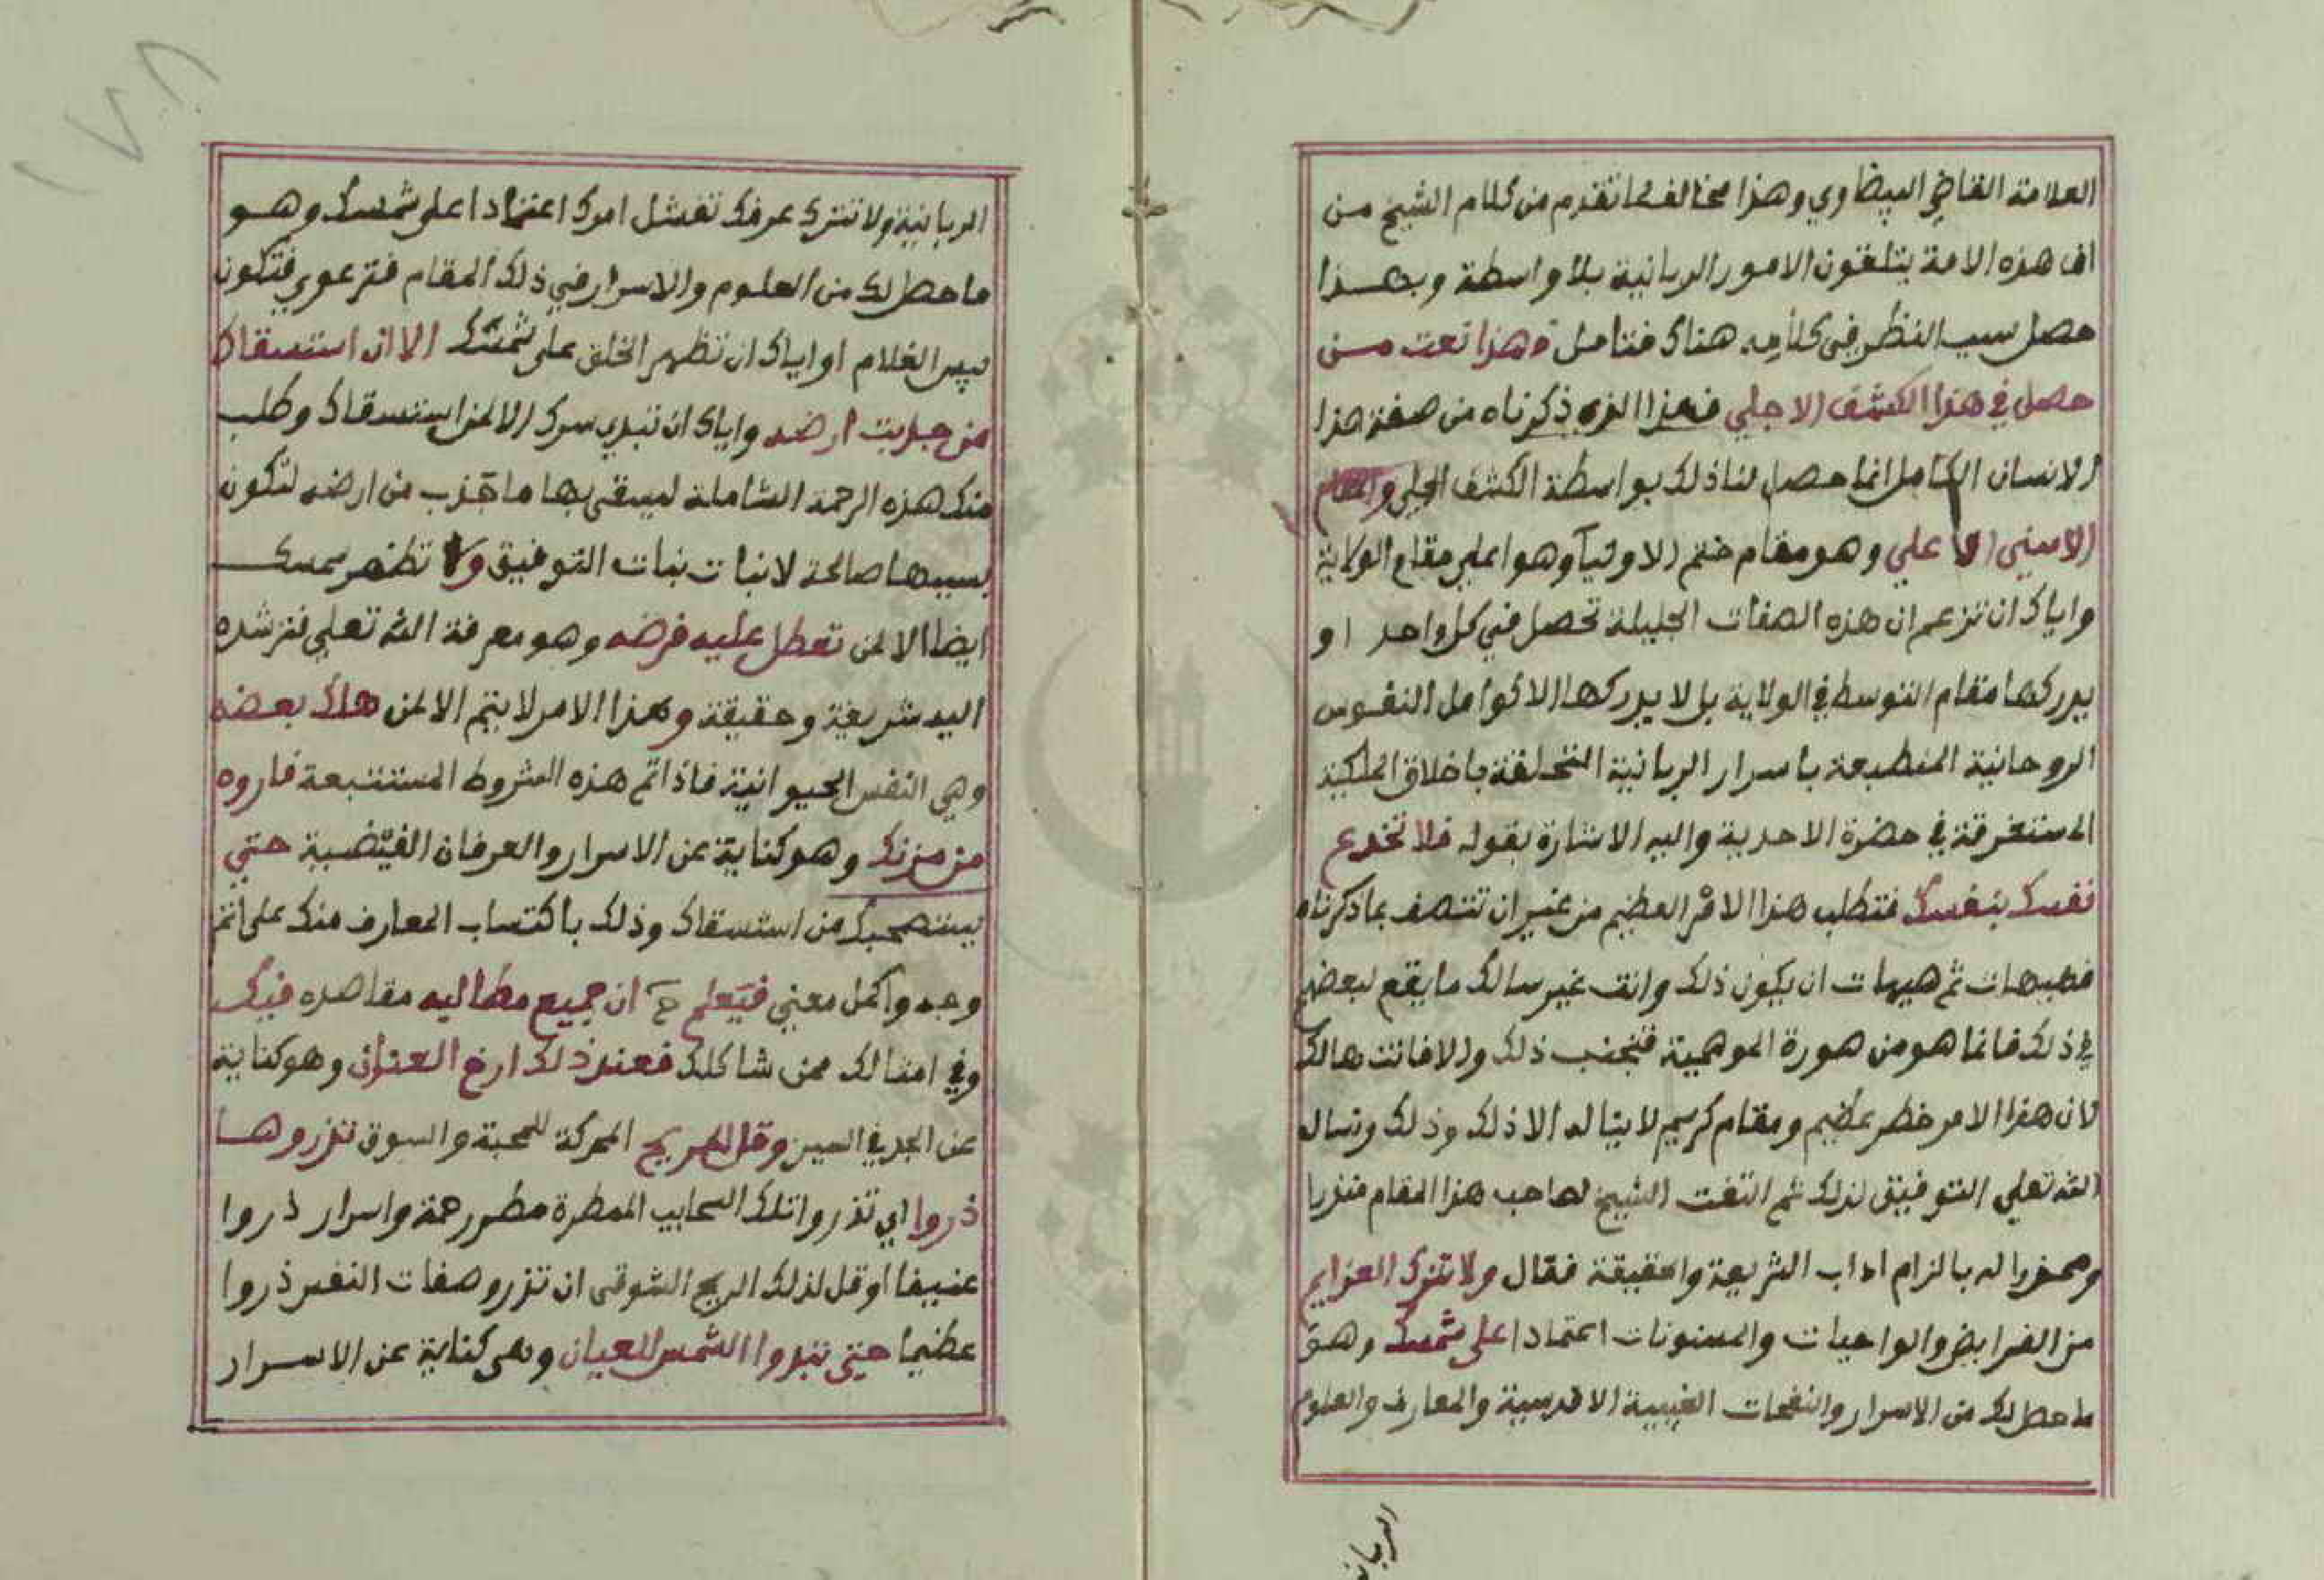 العلامة القاضي البيضاوي وهذا مخالف لما تقدم من كلام الشيخ من
ان هذه الامة يتلقون الامور الربانية بلا واسطة وبهذا
حصل سبب النظر في كلامه هناك فتامل وهذا نعت من
حصل في هذا الكشف الاجلي فهذا الذي ذكرناه من صفة هذا
الانسان الكامل انما حصل لنا ذلك بواسطة الكشف الجلي والمقام
الاسني الاعلي وهو مقام ختم الاوليآ وهو اعلي مقام الولاية
واياك ان تزعم ان هذه الصفات الجليلة تحصل في كل واحد او
يدركها مقام التوسط في الولاية بل لا يدركها الا كوامل النفوس
الروحانية المنطبعة باسرار الربانية المتخلقة باخلاق الملكية
المستغرقة في حضرة الاحدية واليه الاشارة بقوله فلا تخدع
نفسك بنفسك فتطلب هذا الامر العظيم من غير ان تتصف بما ذكرناه
فهيهات ثم هيهات ان يكون ذلك وانت غير سالك ما يقع لبعضهم
في ذلك فانما هو من صورة الموهمية فتجنب ذلك والا فانت هالك
لان هذا الامر خطر عظيم ومقام كريم لا يناله الا ذلك وذلك ونساله
الله تعلي التوفيق لذلك ثم التفت الشيخ لصاحب هذا المقام منذرا
ومحذرا له بالزام اداب الشريعة والحقيقة فقال ولا تترك العزايم
من الفرايض والواجبات والمسنونات اعتمادا علي شمسك وهو
ما حصل لك من الاسرار والنفحات الغيبية الاقدسية والمعارف والعلوم
الربانية
الربانية ولا تترك عرفك تفشل امرك اعتمادا علي شمسك وهو
ما حصل لك من العلوم والاسرار في ذلك المقام فترعوي فتكون
بيس الغلام او اياك ان تظهر الخلق علي شمسك الا ان استسقاك
من جدبت ارضه واياك ان تبدي سرك الا لمن استسقاك وطلب
منك هذه الرحمة الشاملة ليسقي بها ما جدب من ارضه لتكون
بسببها صالحة لانبات نبات التوفيق ولا تظهر سمسك
ايضا الا لمن تعطل عليه فرضه وهو معرفة الله تعلي فترشده
اليه شريعة وحقيقة وهذا الامر لا يتم الا لمن هلك بعضه
وهي النفس الحيوانية فاذا تم هذه الشروط المستتبعة فاروه
من مزنك وهو كناية عن الاسرار والعرفان الفيضية حتي
يستصحبك من استسقاك وذلك باكتساب المعارف منك علي اتم
وجه واكمل معني فيعلم ح ان جميع مطاليه مقاصده فيك
وفي امثالك ممن شاكلك فعند ذلك ارخ العنان وهو كناية
عن الجد في السير وقل للريح المحركة للمحبة والسوق تذروها
ذروا اي تذروا تلك السحايب الممطرة مطر رحمة واسرار ذروا
عنيفا او قل لذلك الريح الشوقي ان تزرو صفات النفس ذروا
عظيما حتي تبدوا الشمس للعيان وهي كناية عن الاسرار
١٧٨